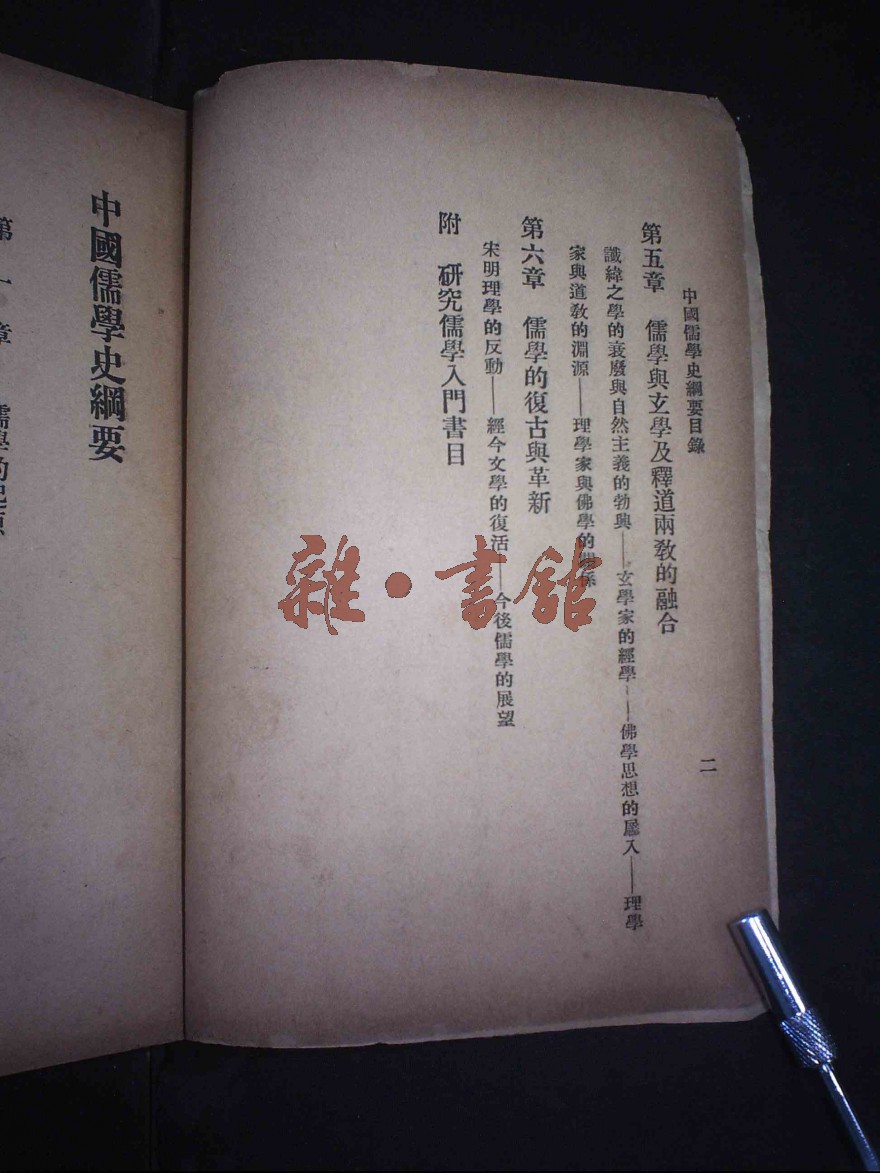 中國儒學史綱要目錄
二
第五章 儒學與玄學及釋道兩教的融合
讖緯之學的衰廢與自然主義的勃興——玄學家的經學——佛學思想的羼入——理學
家與道教的淵源——理學家與佛學的關係
第六章 儒學的復古與革新
宋明理學的反動——經今文學的復活——今後儒學的展望
附 研究儒學入門書目
中國儒學史綱要
第一章 儒學的起源
雜·書館